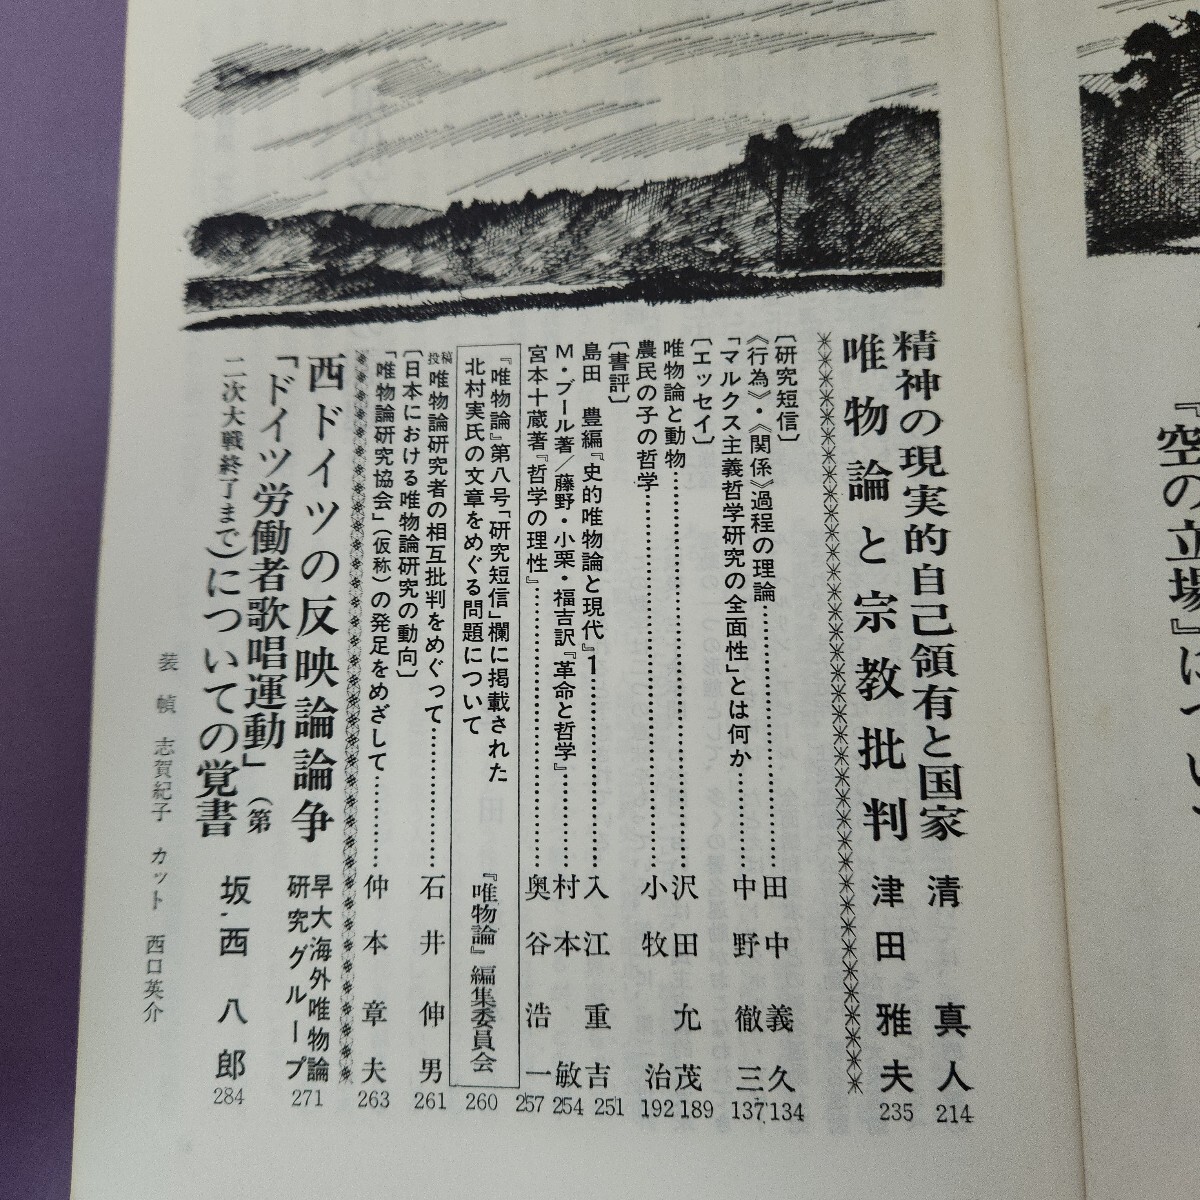 空の立場』につい
精神の現実的自己領有と国家 清 真人 214
唯物論と宗教批判 津田雅夫 235
〔研究短信〕
《行為》・《関係》過程の理論…………田中義久 134
「マルクス主義哲学研究の全面性」とは何か…………中野徹三 137
〔エッセイ〕
唯物論と動物…………沢田允茂 189
農民の子の哲学…………小牧 治 192
〔書評〕
島田 豊編『史的唯物論と現代』1…………入江重吉 251
M・ブール著/藤野・小栗・福吉訳『革命と哲学』…………村本 敏 254
宮本十蔵著『哲学の理性』…………奥谷浩一 257
『唯物論』第八号「研究短信」欄に掲載された
北村実氏の文章をめぐる問題について 『唯物論』編集委員会 260
投稿 唯物論研究者の相互批判をめぐって…………石井伸男 261
〔日本における唯物論研究の動向〕
「唯物論研究協会」(仮称)の発足をめざして…………仲本章夫 263
西ドイツの反映論論争 早大海外唯物論研究グループ 271
「ドイツ労働者歌唱運動」(第
二次大戦終了まで)についての覚書 坂西八郎 284
装幀 志賀紀子 カット 西口英介